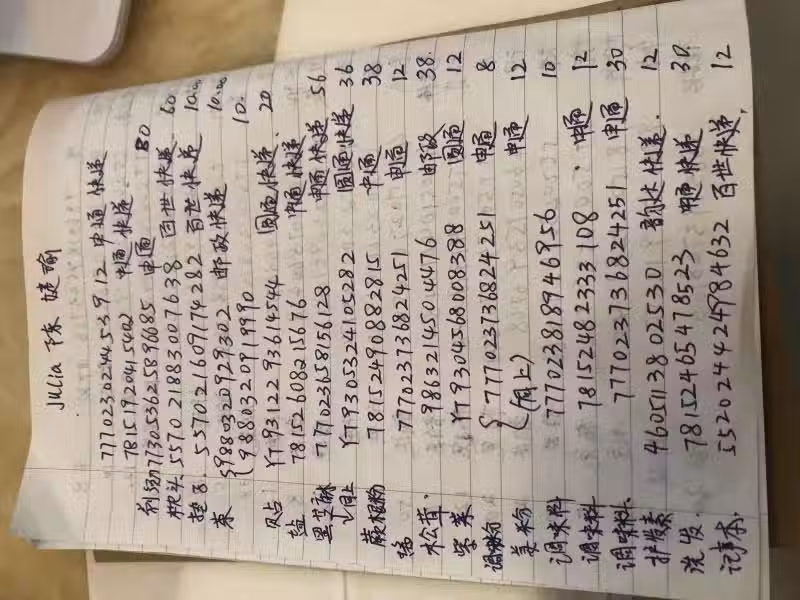 Julia 陈 婕瑜
777023024453912 中通 快递
78151920415402 中通 快递
773053625896685 申通 80
枕头 557021883007638 百世 快递 60
557021609174282 百世 快递 10.00
茶 9880320929302 邮政 快递 10.00
9880320919990 10.
YT9312293614544 圆通 快递. 20
盐 781526082115676 中通 快递
黑芝麻 777023658156128 申通 快递 56
YT9305324105282 圆通 快递 36
蕨根粉 78152490882815 中通 38
777023736824251 申通 12
水松茸. 9863214504476 邮政 38.
紫菜 YT9304568008388 圆通 12
调味粉 777023736824251 申通 8
姜粉 (同上) 申通 12
调味料 777023818946956 10
调味料 781524823333108. 中通 12
调味料. 777023736824251 申通 30
护发素 4605113802530 韵达 快递. 12
洗发. 781524054785​23 中通 快递 30.
记事本. 552024424984632 百世 快递, 12